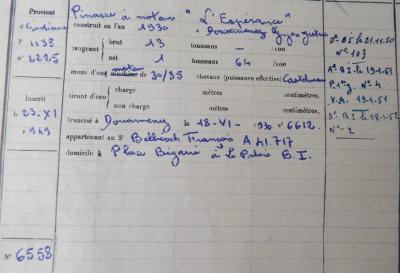 Provient
d'
P 1138
n° 2225
Inscrit
le 23-XI
1949
N° 6558
Pinasse à moteur "L'Espérance"
construit en l'an 1930 à Douarnenez
jaugeant
brut 13 tonneaux — /100
net 1 tonneaux 64 /100
muni d'un moteur machine de 30/35 chevaux (puissance effective)
tirant d'eau
chargé mètres centimètres.
non chargé mètres centimètres.
francisé à Douarnenez le 18-VI- 930 n° 6612.
appartenant au Sr François A 41.717
domicilié à Place Bigarré à le Palais B.I.
Dn BI le 21.11.50
N° 103
An BI le 19.1.51
N° 4
V.A. 19.1.51
Dn BI le 18.1.52
N° 2